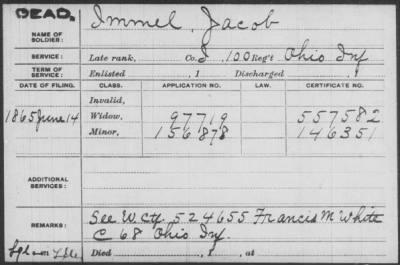 DEAD.
NAME OF SOLDIER: Immel, Jacob
SERVICE: Late rank, Co. I, 100 Reg't Ohio Inf
TERM OF SERVICE: Enlisted , 1 Discharged , 1
DATE OF FILING. CLASS. APPLICATION NO. LAW. CERTIFICATE NO.
Invalid,
1865 June 14 Widow, 97719 557582
Minor, 156878 146351
ADDITIONAL SERVICES:
REMARKS: See W. ctf. 524655 Francis M White
C 68 Ohio Inf.
Died , 1 , at